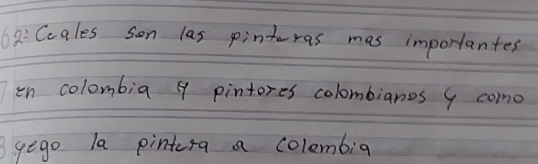 62: Ccales son las pinturas mas importantes
7 en colombia y pintores colombianos y como
8 yego la pintura a colombia